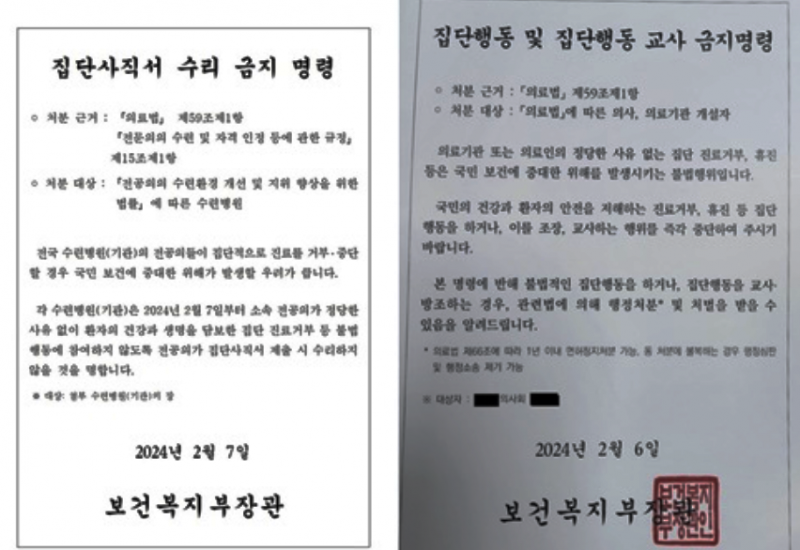 집단사직서 수리 금지 명령
○ 처분 근거 : 「의료법」 제59조제1항
「전문의의 수련 및 자격 인정 등에 관한 규정」
제15조제1항
○ 처분 대상 : 「전공의의 수련환경 개선 및 지위 향상을 위한
법률」에 따른 수련병원
전국 수련병원(기관)의 전공의들이 집단적으로 진료를 거부·중단
할 경우 국민 보건에 중대한 위해가 발생할 우려가 큽니다.
각 수련병원(기관)은 2024년 2월 7일부터 소속 전공의가 정당한
사유 없이 환자의 건강과 생명을 담보한 집단 진료거부 등 불법
행동에 참여하지 않도록 전공의가 집단사직서 제출 시 수리하지
않을 것을 명합니다.
※ 대상: 첨부 수련병원(기관)의 장
2024년 2월 7일
보건복지부장관
집단행동 및 집단행동 교사 금지명령
○ 처분 근거 : 「의료법」 제59조제1항
○ 처분 대상 : 「의료법」에 따른 의사, 의료기관 개설자
의료기관 또는 의료인의 정당한 사유 없는 집단 진료거부, 휴진
등은 국민 보건에 중대한 위해를 발생시키는 불법행위입니다.
국민의 건강과 환자의 안전을 저해하는 진료거부, 휴진 등 집단
행동을 하거나, 이를 조장, 교사하는 행위를 즉각 중단하여 주시기
바랍니다.
본 명령에 반해 불법적인 집단행동을 하거나, 집단행동을 교사·
방조하는 경우, 관련법에 의해 행정처분* 및 처벌을 받을 수
있음을 알려드립니다.
* 의료법 제66조에 따라 1년 이내 면허정지처분 가능, 동 처분에 불복하는 경우 행정심판
및 행정소송 제기 가능
※ 대상자 : 의사회
2024년 2월 6일
보건복지부장관
보건복지
부장관인